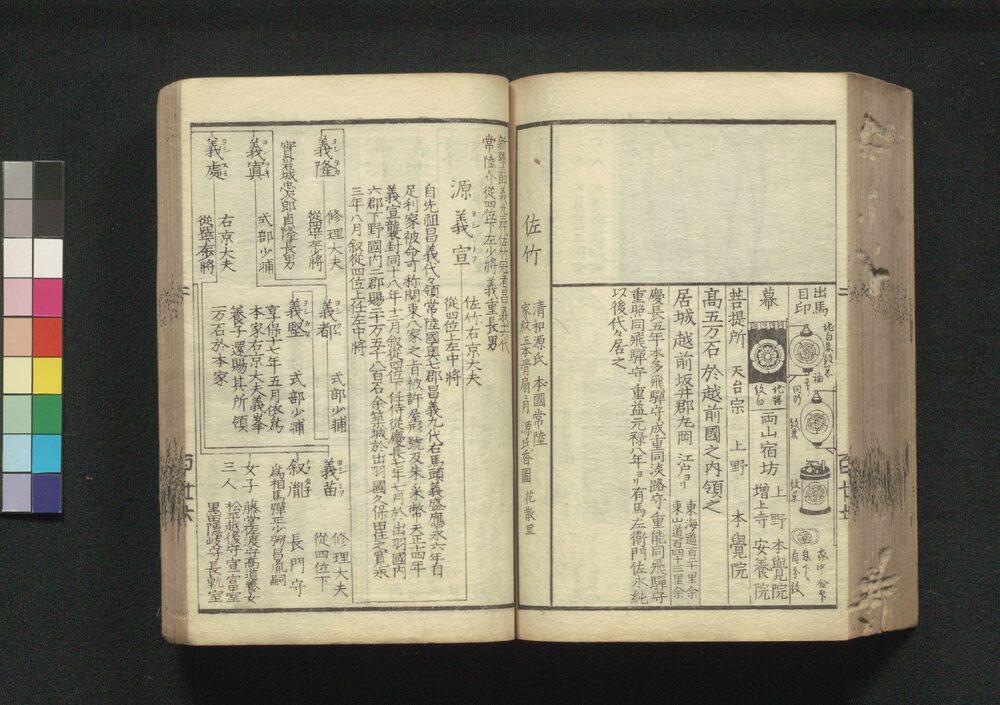 出馬
目印
幕
両山宿坊
上野 本覺院
増上寺 安養院
菩提所 天台宗 上野 本覺院
高五万石於越前國之内領之
居城 越前坂井郡丸岡 江戸ヨリ
東海道百三十里余
東山道百四十三里余
慶長五年本多飛騨守成重同淡路守重能同飛騨守
重昭同飛騨守重益元禄八年ヨリ有馬左衛門佐永純
以後代々居之
佐竹
清和源氏 本國常陸
家紋五本骨扇ニ月 源氏香圖 花散里
常陸介從四位下左少將義重長男
源義宣
佐竹右京大夫
從四位上左中將
自先祖昌義代々領常陸國奥七郡昌義九代右馬頭義盛應永六年自
足利家被命可称関東八家之上且被許屋形號及朱采幣天正十四年
義宣襲封同十八年十二月叙從四位下任侍從慶長七年七月於出羽國内
六郡下野國内二郡賜二十万五千八百石余築城於出羽國久保田住之寛永
三年八月叙從四位上任左中將
義隆
修理大夫
實岩城忠次郎貞隆長男
義寘
式部少輔
義處
右京大夫
義都
式部少輔
義堅
式部少輔
享保十七年五月依為
本家右京大夫義峯
養子還賜其所領
一万石於本家
義苗
修理大夫
從四位下
叙胤
長門守
為相馬彈正少弼昌胤嗣
女子
三人